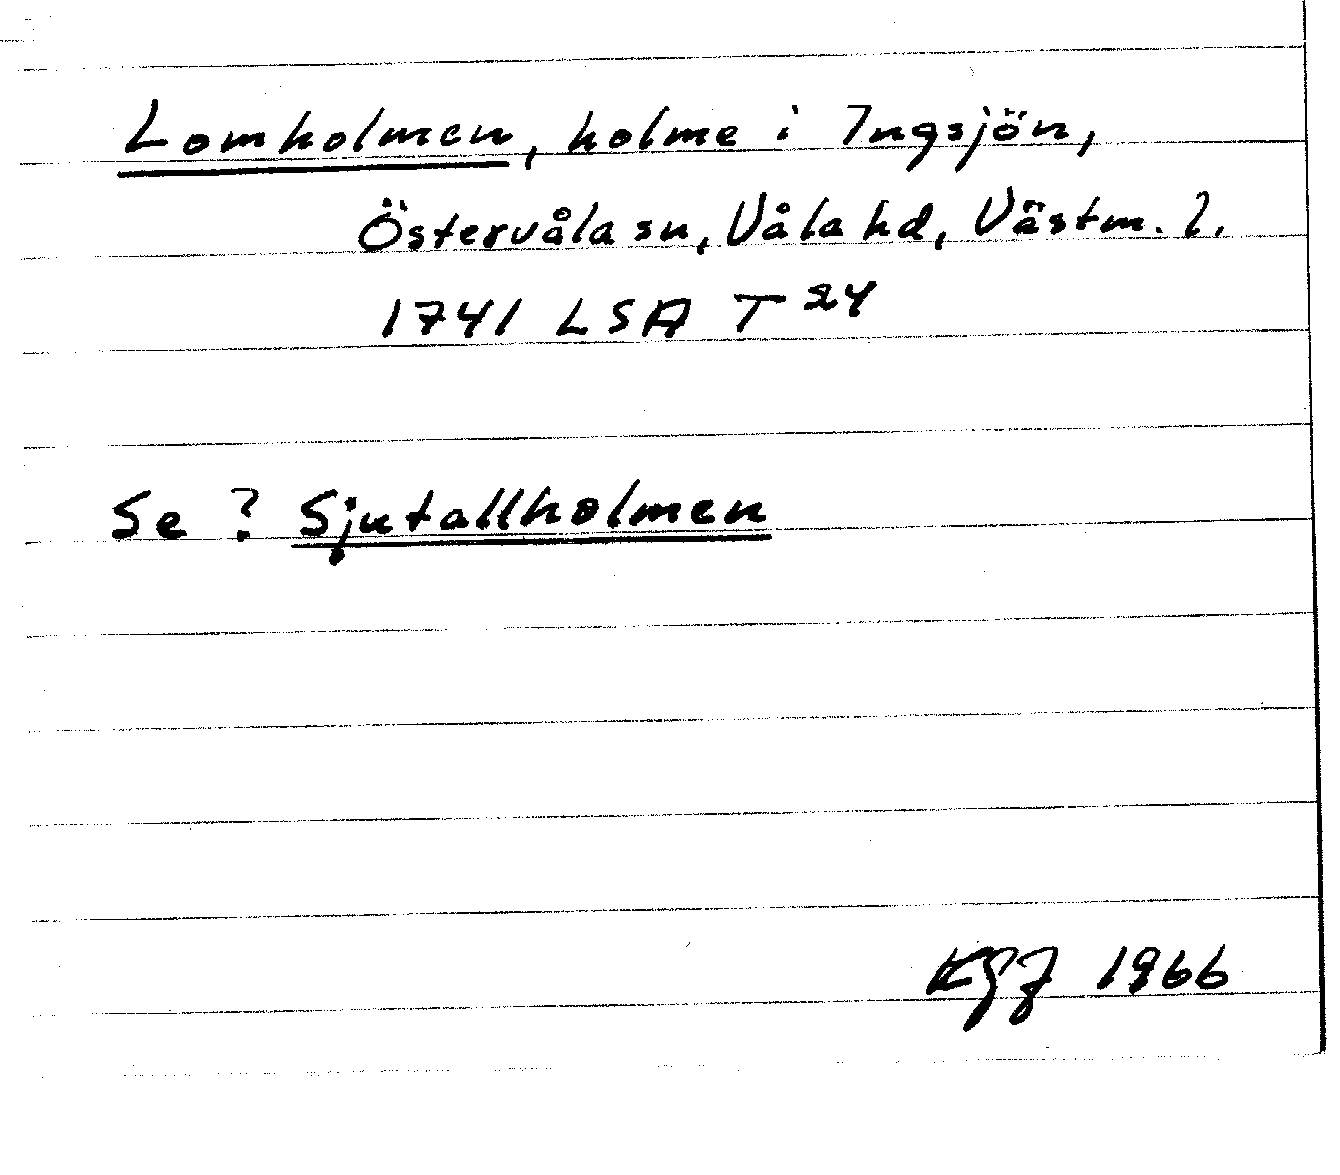 Lomholmen, holme i Ingsjön,
Östervåla sn, Våla hd, Västm. l.
1741 LSA T 24
Se ? Sjutallholmen
KGJ 1966